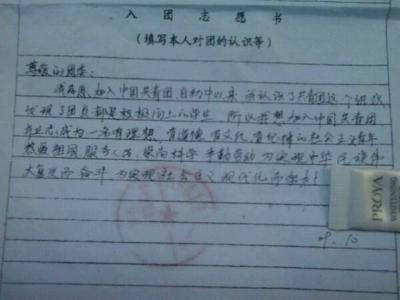 入团志愿书
（填写本人对团的认识等）
尊敬的团委：
我志愿加入中国共青团，自初中以来，我认识了共青团这个组织
发现了团员都是积极向上的学生，所以我想加入中国共青团
成为一名有理想，有道德，有文化，有纪律的社会主义青年
热爱祖国，服务人民，崇尚科学，辛勤劳动，为实现中华民族伟
大复兴而奋斗，为实现社会主义现代化而
PROYA